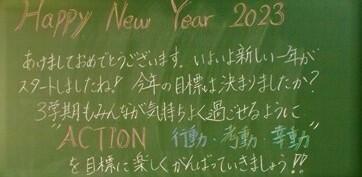 Happy New Year 2023
あけましておめでとうございます。いよいよ新しい一年が
スタートしましたね！今年の目標は決まりましたか？
3学期もみんなが気持ちよく過ごせるように
"ACTION 行動・考動・幸動"
を目標に楽しくがんばっていきましょう!!